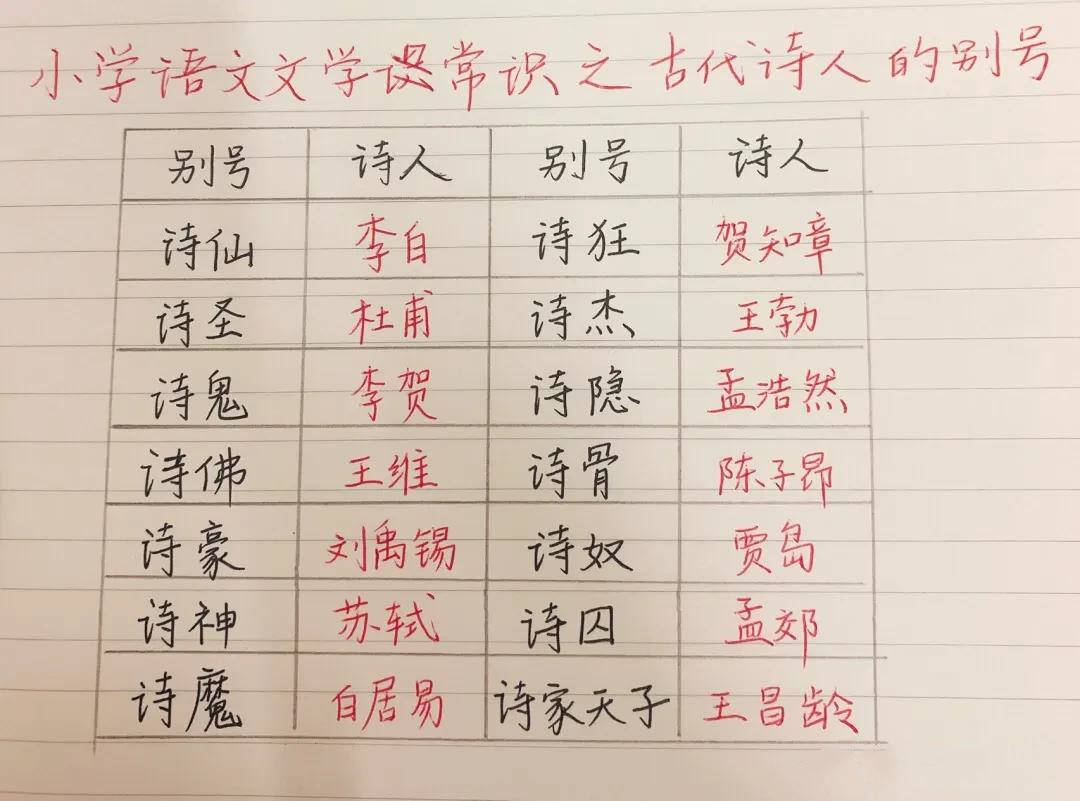 小学语文文学常识之古代诗人的别号
别号 诗人 别号 诗人
诗仙 李白 诗狂 贺知章
诗圣 杜甫 诗杰 王勃
诗鬼 李贺 诗隐 孟浩然
诗佛 王维 诗骨 陈子昂
诗豪 刘禹锡 诗奴 贾岛
诗神 苏轼 诗囚 孟郊
诗魔 白居易 诗家天子 王昌龄